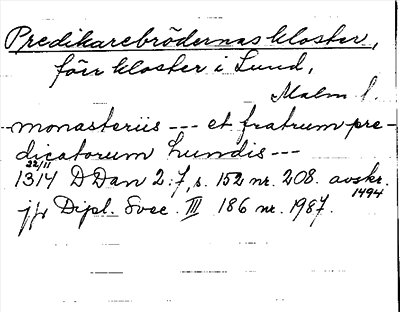 Predikarebrödernas kloster,
förr kloster i Lund,
Malm l.
monasteriis --- et fratrum pre-
dicatorum Lundis ---
22/11
1314 D Dan 2:7, s. 152 nr. 208. avskr.
1494
jfr Dipl. Svec. III 186 nr. 1987.